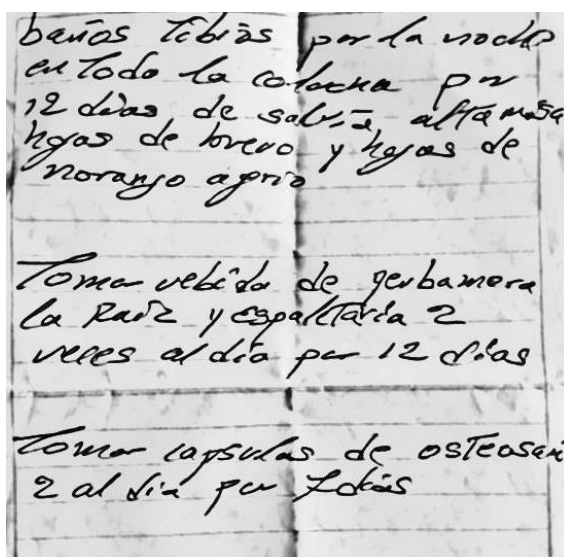 baños Tibios por la noche
en Todo la colocna por
12 dias de salvia, altamisa
hojas de brevo y hojas de
noranjo agrio
Tomar vebida de yerbamora
la Raiz y espalitaria 2
veces al día por 12 dias
Tomar capsulas de osteosan
2 al dia por 7 dias